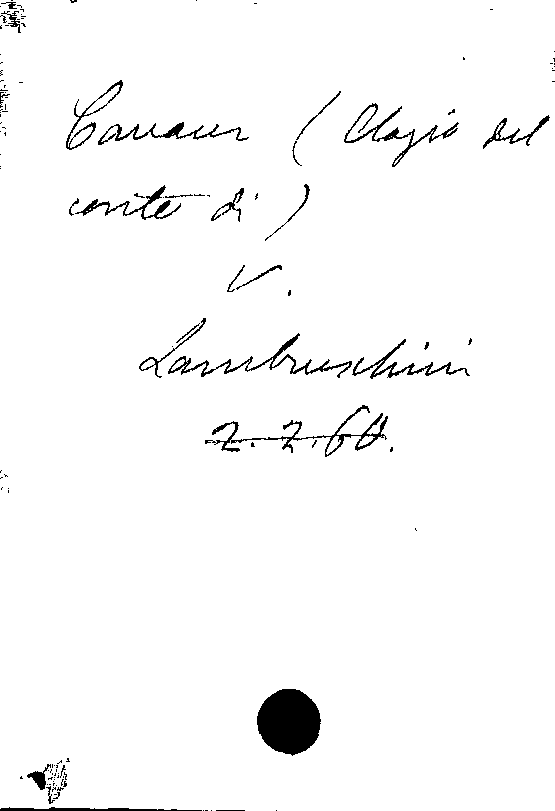 Cavour (Elogio del
conte di)
V.
Lambruschini
2. 2. 60.